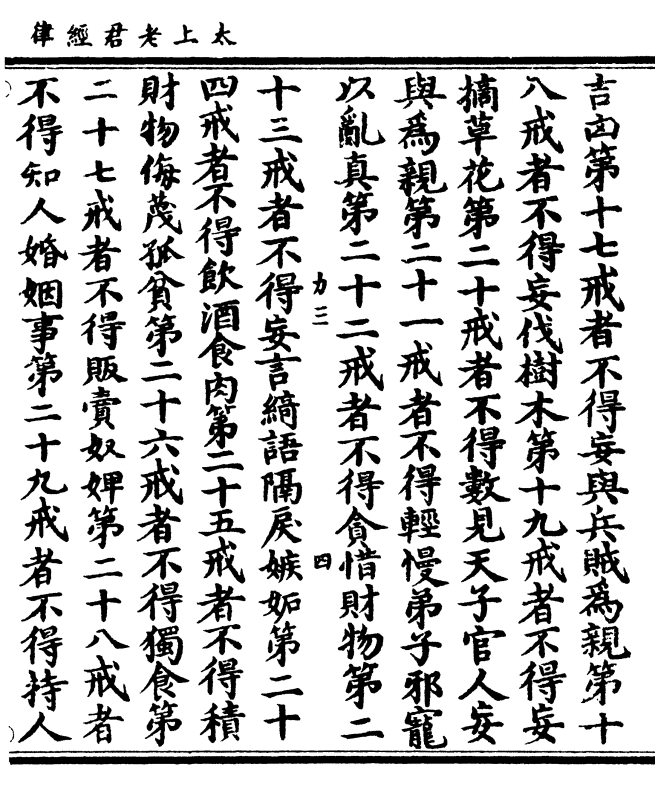 太上老君經律
吉凶第十七戒者不得妄與兵賊為親第十
八戒者不得妄伐樹木第十九戒者不得妄
摘草花第二十戒者不得數見天子官人妄
與為親第二十一戒者不得輕慢弟子邪寵
以亂真第二十二戒者不得貪惜財物第二
力三
四
十三戒者不得妄言綺語隔戾嫉妬第二十
四戒者不得飲酒食肉第二十五戒者不得積
財物侮蔑孤貧第二十六戒者不得獨食第
二十七戒者不得販賣奴婢第二十八戒者
不得知人婚姻事第二十九戒者不得持人